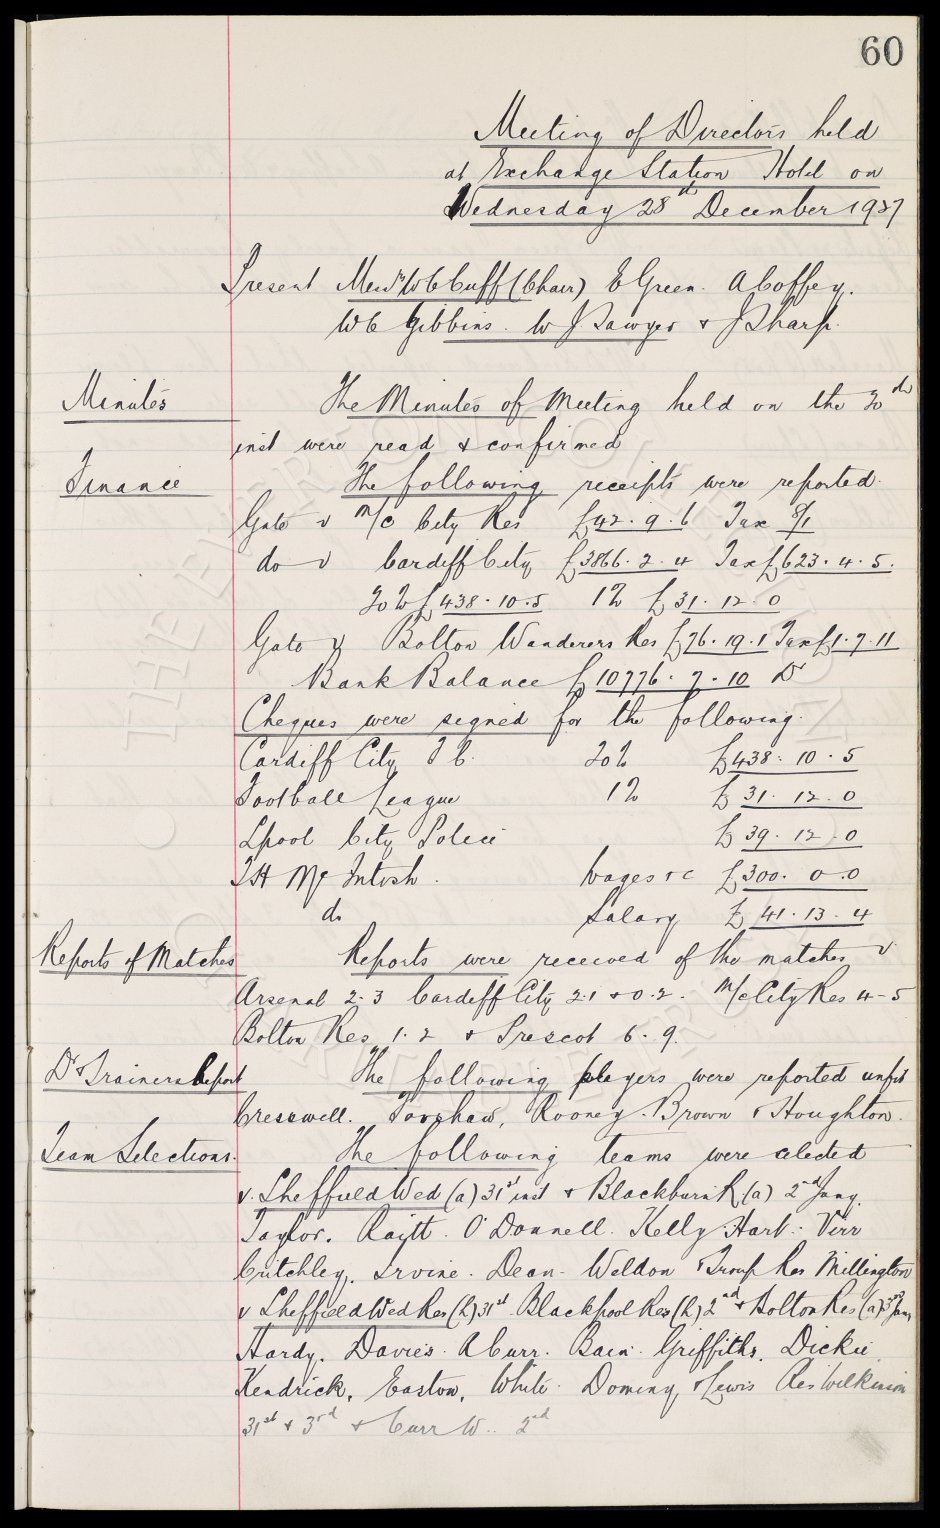 60
Meeting of Directors held
at Exchange Station Hotel on
Wednesday 28th December 1927
Present Messrs W C Cuff (Chair) E Green. A Coffey.
W C Gibbins. W J Sawyer & J Sharp.
Minutes The Minutes of Meeting held on the 20th
inst were read & confirmed
Finance The following receipts were reported.
Gate v M/c City Res £42.9.6 Tax 8/1
do v Cardiff City £3866.2.4 Tax £623.4.5.
20% £438.10.5 1% £31.12.0
Gate v Bolton Wanderers Res £76.19.1 Tax £1.7.11
Bank Balance £10776.7.10 Dr
Cheques were signed for the following.
Cardiff City F C. 20% £438.10.5
Football League 1% £31.12.0
Lpool City Police £39.12.0
T H McIntosh. Wages &c £300.0.0
do Salary £41.13.4
Reports of Matches Reports were received of the matches v
Arsenal 2-3 Cardiff City 2.1 & 0.2. M/c City Res 4-5
Bolton Res 1.2 & Prescot 6.9.
Dr & Trainers Report The following players were reported unfit
Cresswell. Forshaw, Rooney. Brown & Houghton.
Team Selections. The following teams were selected
v. Sheffield Wed (a) 31st inst & Blackburn R (a) 2nd Jany.
Taylor. Raitt. O'Donnell. Kelly. Hart. Virr
Critchley. Irvine. Dean. Weldon & Troup Res Millington
v Sheffield Wed Res (h) 31st Blackpool Res (h) 2nd & Bolton Res (a) 3rd Jany
Hardy. Davies. A Curr. Bain. Griffiths. Dickie
Kendrick, Easton, White. Dominy & Lewis Res Wilkinson
31st & 3rd & Curr W.. 2nd
THE EVERTON COLLECTION
CHARITABLE TRUST